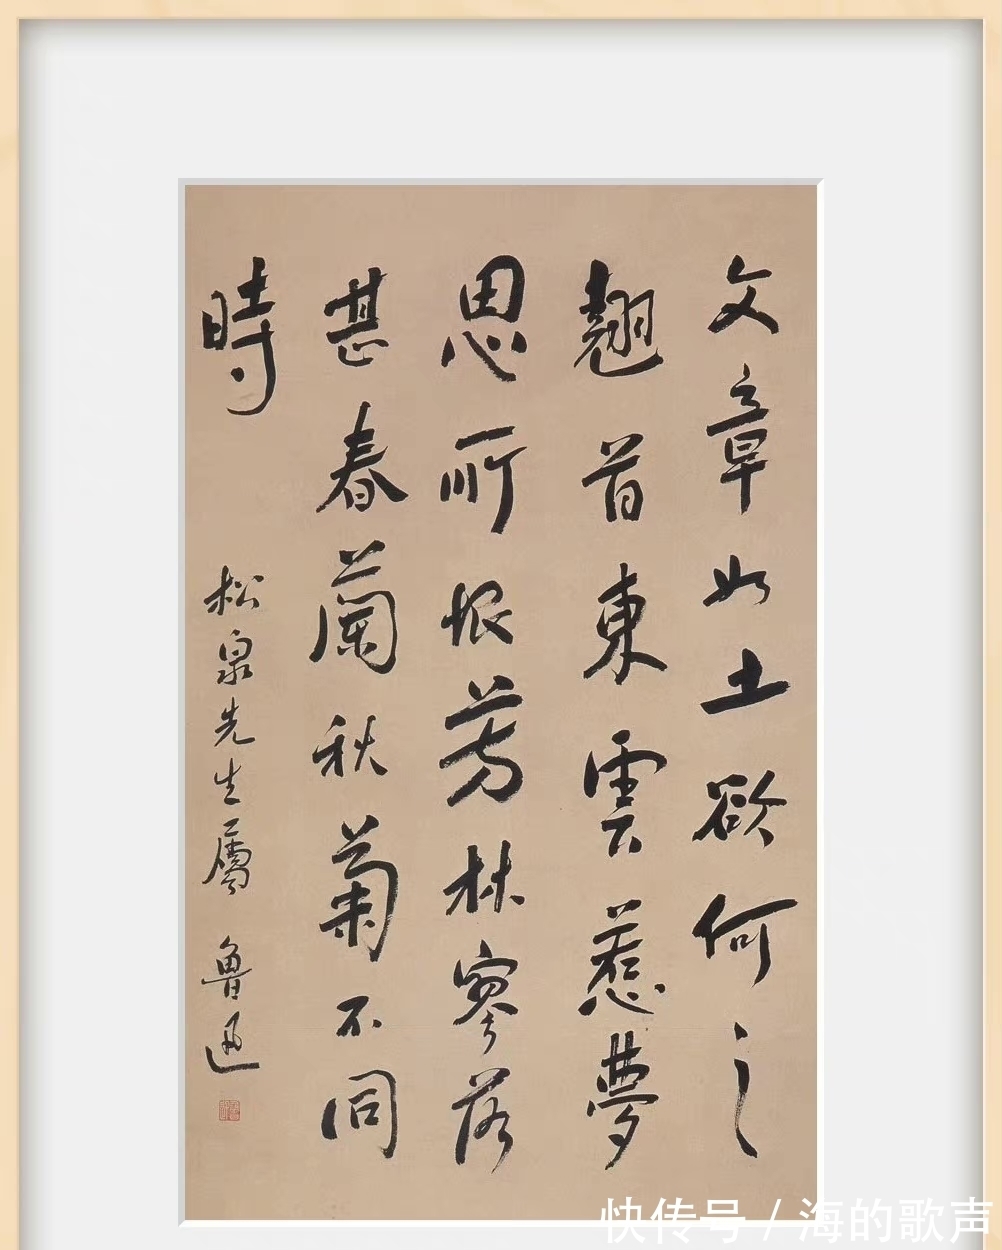 文章如土欲何之
翹首東雲惹夢
思所恨芳林寥落
甚春蘭秋菊不同
時
松泉先生屬
魯迅
快传号 / 海的歌声